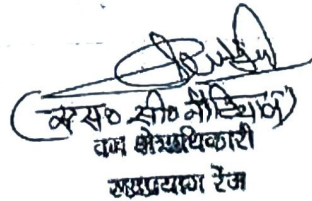 (एस० सी० नौटियाल)
वन क्षेत्राधिकारी
रुद्रप्रयाग रेंज